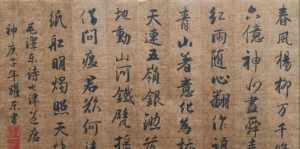 春風楊柳万千
六億神州盡舜
紅雨随心翻作
青山著意化為
天連五嶺銀鋤
地動山河鐵臂
借問瘟君欲何
紙船明燭照天
毛澤東詩七律送瘟
神